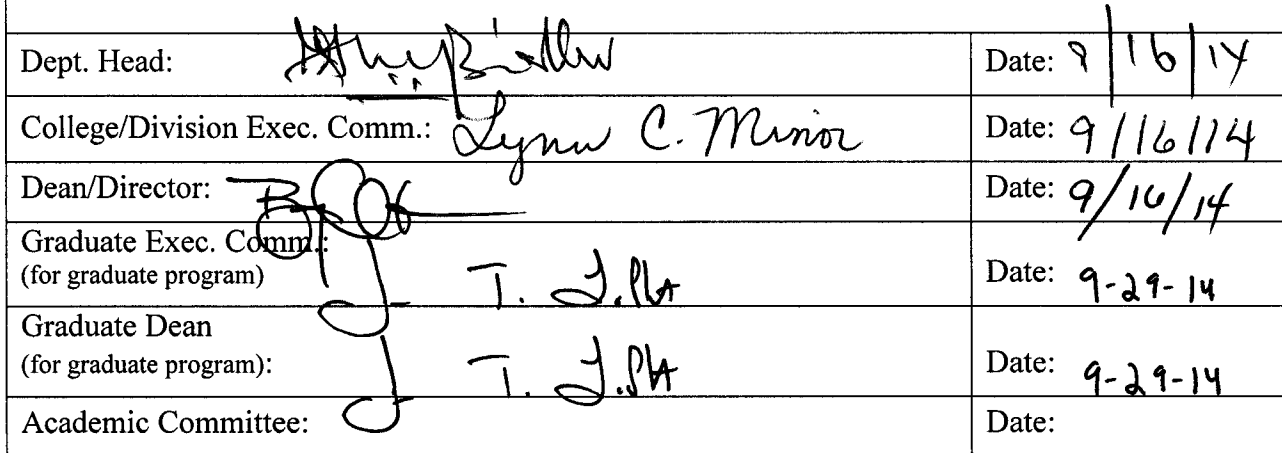 Dept. Head: Date: 9/16/14
College/Division Exec. Comm.: Lynn C. Minor Date: 9/16/14
Dean/Director: Date: 9/16/14
Graduate Exec. Comm.:
(for graduate program) Date: 9-29-14
Graduate Dean
(for graduate program): Date: 9-29-14
Academic Committee: Date: